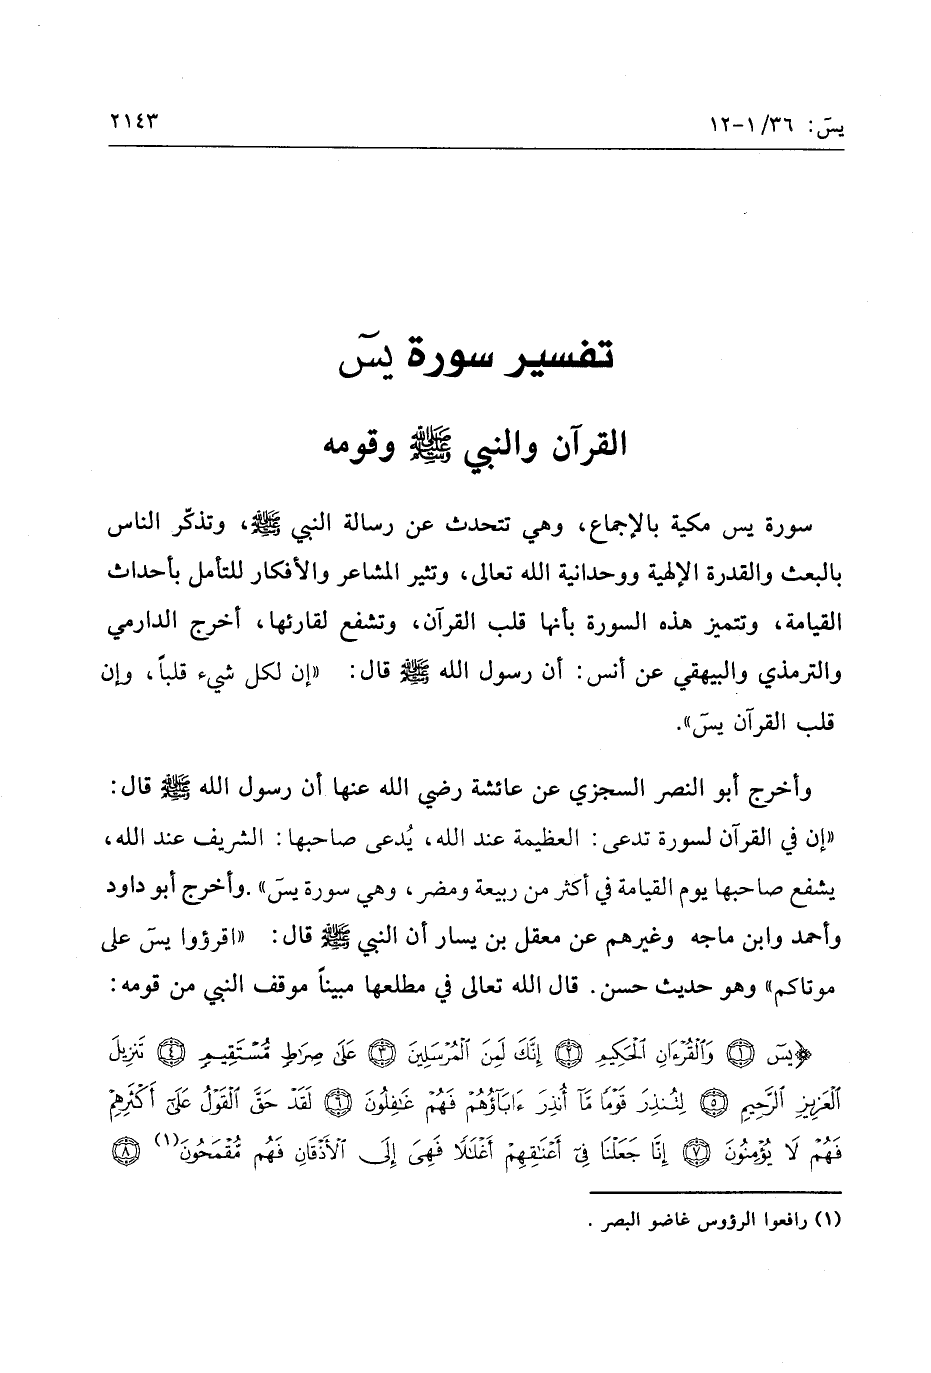 يسٓ: ٣٦/ ١-١٢ ٢١٤٣
تفسير سورة يسٓ
القرآن والنبي ﷺ وقومه
سورة يس مكية بالإجماع، وهي تتحدث عن رسالة النبي ﷺ، وتذكّر الناس
بالبعث والقدرة الإلهية ووحدانية الله تعالى، وتثير المشاعر والأفكار للتأمل بأحداث
القيامة، وتتميز هذه السورة بأنها قلب القرآن، وتشفع لقارئها، أخرج الدارمي
والترمذي والبيهقي عن أنس: أن رسول الله ﷺ قال: «إن لكل شيء قلباً، وإن
قلب القرآن يسٓ».
وأخرج أبو النصر السجزي عن عائشة رضي الله عنها أن رسول الله ﷺ قال:
«إن في القرآن لسورة تدعى: العظيمة عند الله، يُدعى صاحبها: الشريف عند الله،
يشفع صاحبها يوم القيامة في أكثر من ربيعة ومضر، وهي سورة يسٓ». وأخرج أبو داود
وأحمد وابن ماجه وغيرهم عن معقل بن يسار أن النبي ﷺ قال: «اقرؤوا يسٓ على
موتاكم» وهو حديث حسن. قال الله تعالى في مطلعها مبيناً موقف النبي من قومه:
﴿يسٓ ۝١ وَٱلْقُرْءَانِ ٱلْحَكِيمِ ۝٢ إِنَّكَ لَمِنَ ٱلْمُرْسَلِينَ ۝٣ عَلَىٰ صِرَٰطٍ مُّسْتَقِيمٍ ۝٤ تَنزِيلَ
ٱلْعَزِيزِ ٱلرَّحِيمِ ۝٥ لِتُنذِرَ قَوْمًا مَّآ أُنذِرَ ءَابَآؤُهُمْ فَهُمْ غَٰفِلُونَ ۝٦ لَقَدْ حَقَّ ٱلْقَوْلُ عَلَىٰٓ أَكْثَرِهِمْ
فَهُمْ لَا يُؤْمِنُونَ ۝٧ إِنَّا جَعَلْنَا فِىٓ أَعْنَٰقِهِمْ أَغْلَٰلًا فَهِىَ إِلَى ٱلْأَذْقَانِ فَهُم مُّقْمَحُونَ(١) ۝٨
(١) رافعوا الرؤوس غاضو البصر.